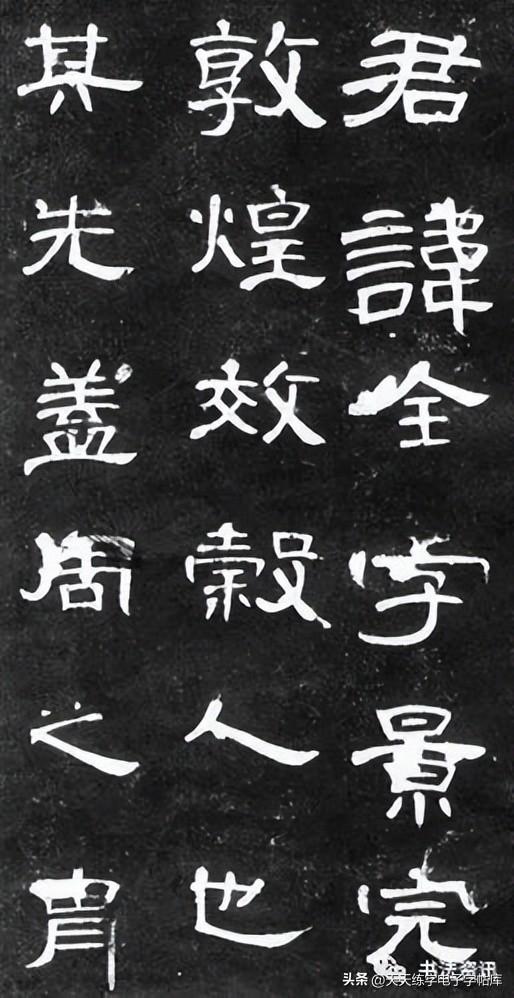 君諱全字景完
敦煌效穀人也
其先蓋周之胄
书法资讯
头条 @天天练字电子字帖库